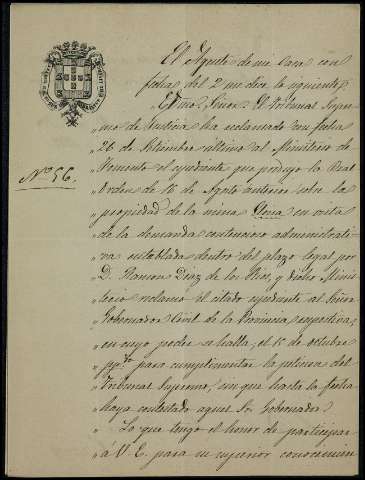 El Agente de mi Casa con
fecha del 2 me dice lo siguiente:
"Excmo. Señor: El Tribunal Supre-
"mo de Justicia ha reclamado con fecha
"26 de Setiembre último al Ministerio de
"Fomento el espediente que produjo la Real
Nº 56.
"orden de 16 de Agosto anterior sobre la
"propiedad de la mina Elena en vista
"de la demanda contencioso administrati-
"va entablada dentro del plazo legal por
"D. Ramon Diaz de los Rios, y dicho Minis-
"terio reclamó el citado espediente al Señor
"Gobernador Civil de la Provincia respectiva,
"en cuyo poder se halla, el 1º de octubre
"pp.do para cumplimentar la peticion del
"Tribunal Supremo, sin que hasta la fecha
"haya contestado aquel Sr. Gobernador.
"Lo que tengo el honor de participar
"á V. E. para su superior conocimien